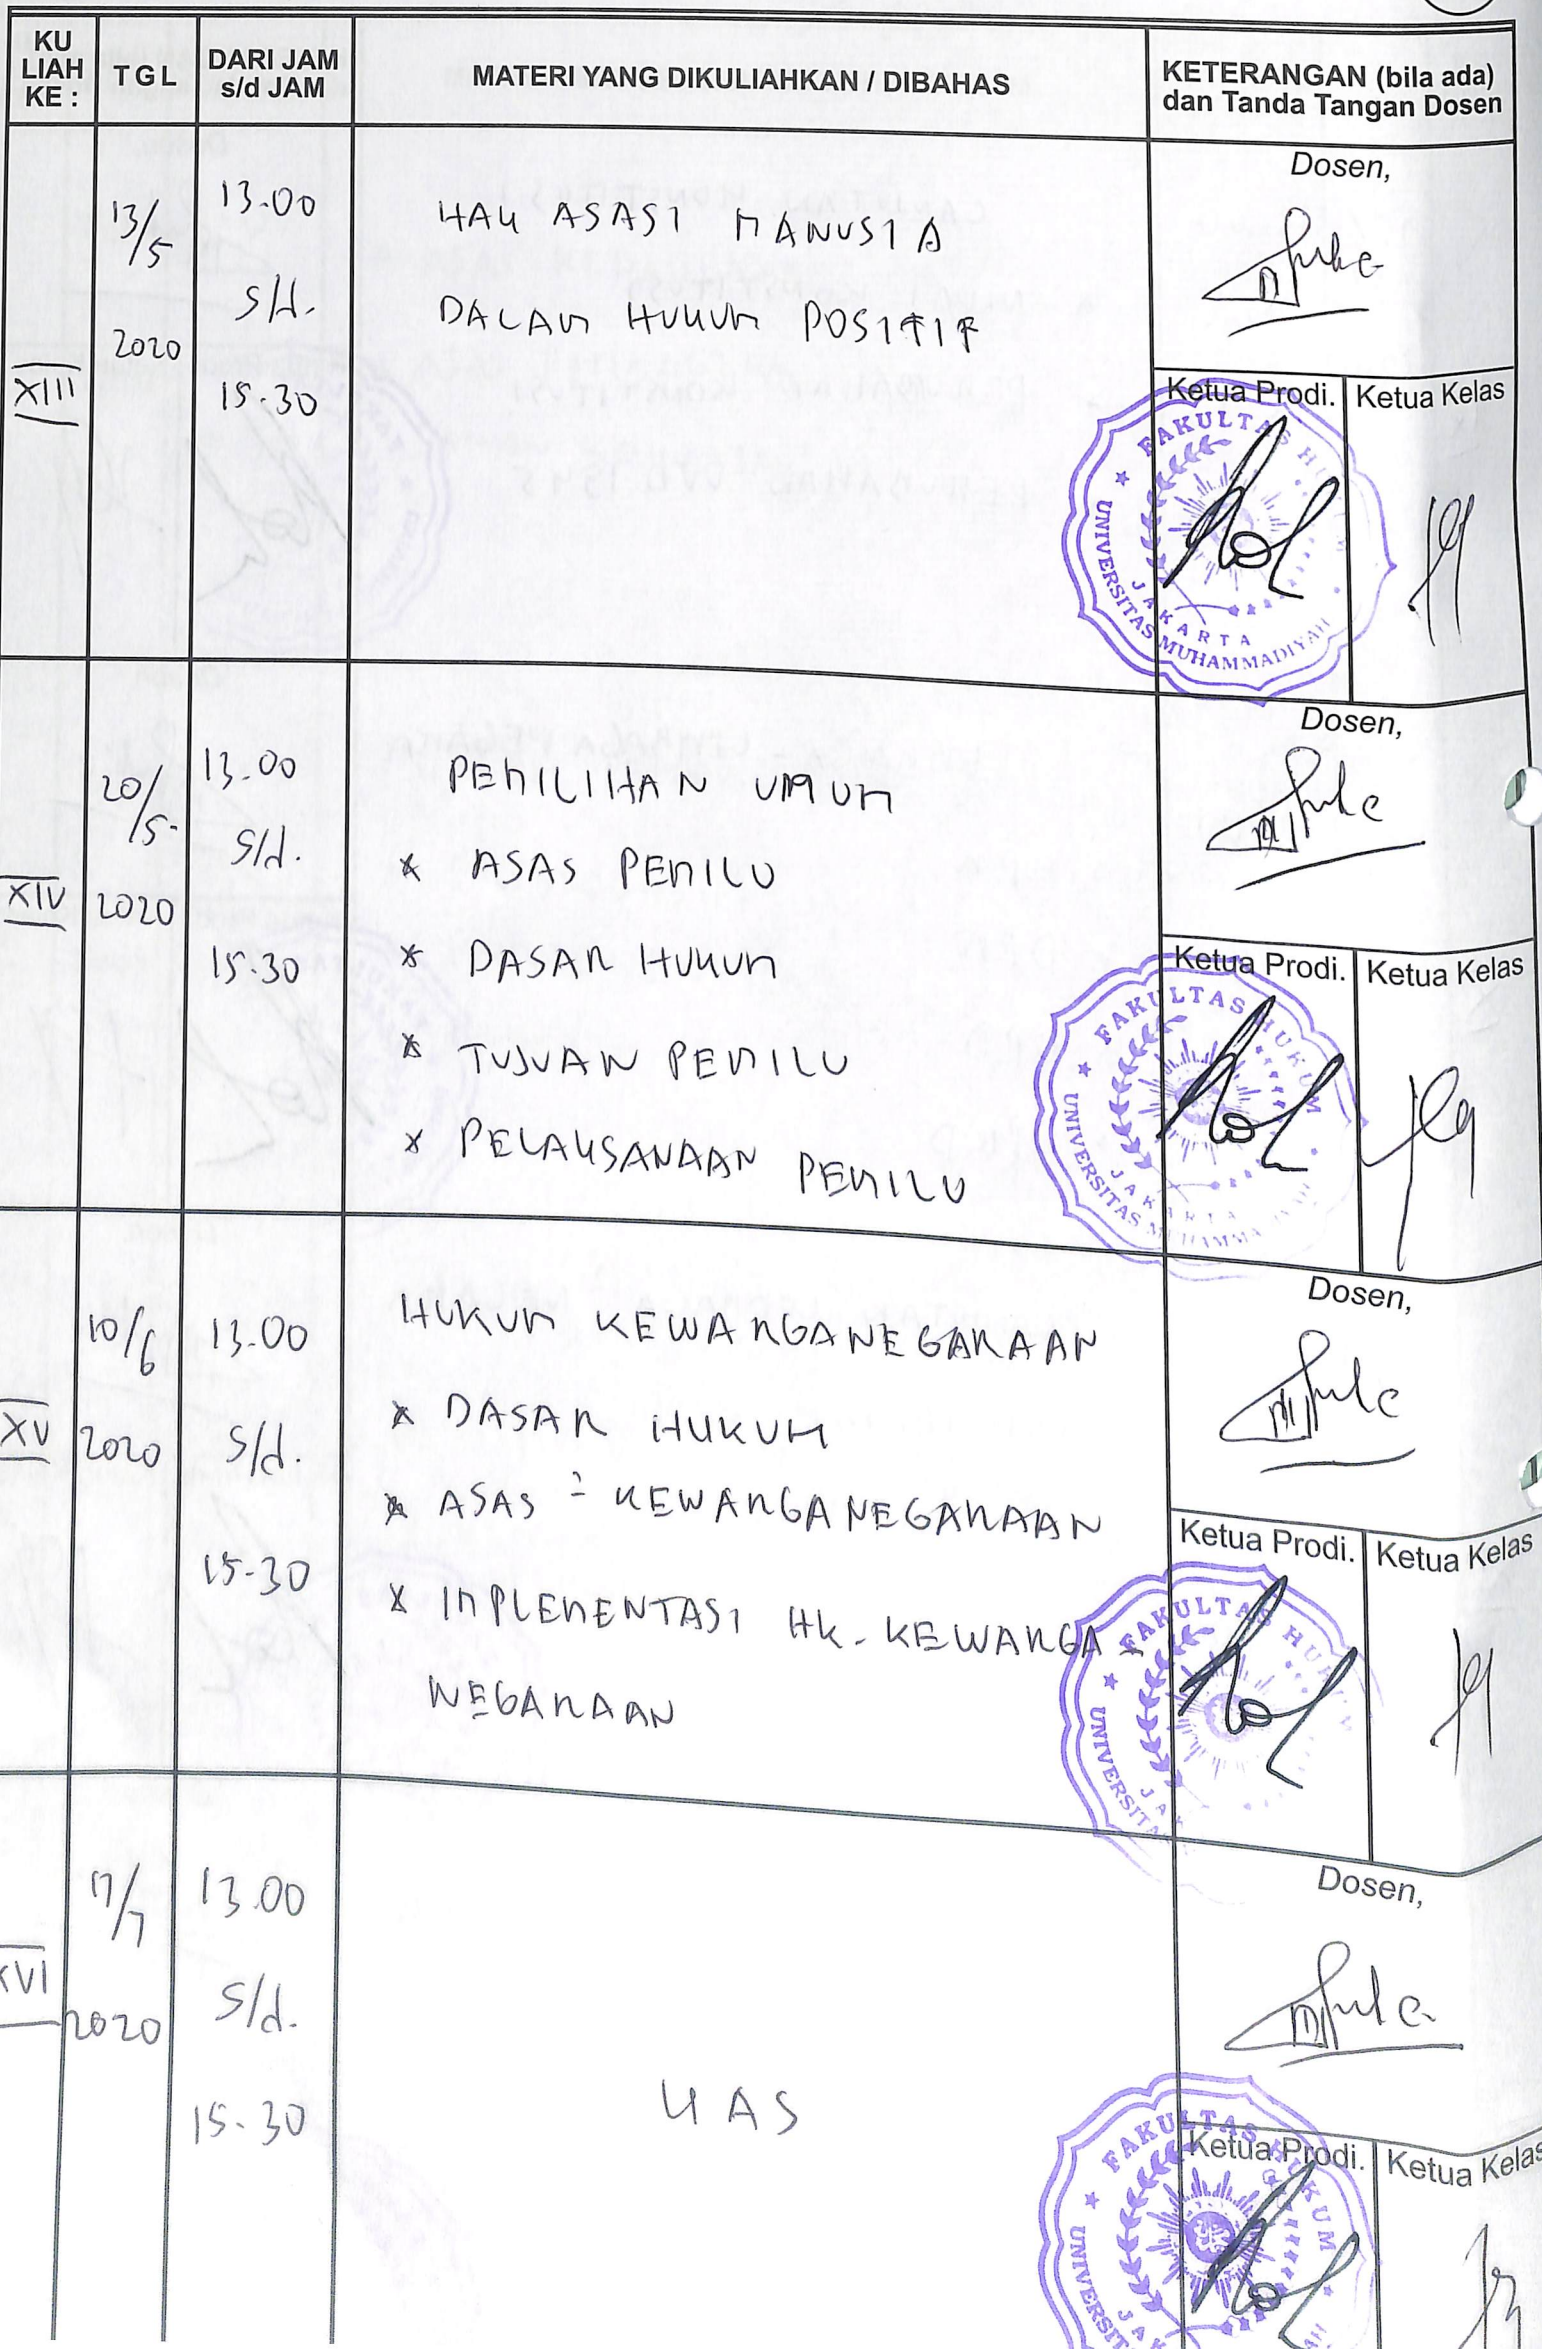 KU LIAH KE :
TGL
DARI JAM s/d JAM
MATERI YANG DIKULIAHKAN / DIBAHAS
KETERANGAN (bila ada) dan Tanda Tangan Dosen
XIII
13/5
2020
13.00
s/d.
15.30
HAK ASASI MANUSIA
DALAM HUKUM POSITIF
Dosen,
Ketua Prodi.
Ketua Kelas
FAKULTAS HUKUM
UNIVERSITAS MUHAMMADIYAH
JAKARTA
XIV
20/5.
2020
13.00
s/d.
15.30
PEMILIHAN UMUM
* ASAS PEMILU
* DASAR HUKUM
* TUJUAN PEMILU
* PELAKSANAAN PEMILU
Dosen,
Ketua Prodi.
Ketua Kelas
FAKULTAS HUKUM
UNIVERSITAS MUHAMMA
JAKARTA
XV
10/6
2020
13.00
s/d.
15.30
HUKUM KEWARGANEGARAAN
* DASAR HUKUM
* ASAS ² KEWARGANEGARAAN
* IMPLEMENTASI HK. KEWARGA -
NEGARAAN
Dosen,
Ketua Prodi.
Ketua Kelas
FAKULTAS HUKUM
UNIVERSITA
JAK
XVI
17/7
2020
13.00
s/d.
15.30
UAS
Dosen,
Ketua Prodi.
Ketua Kelas
FAKULTAS HUKUM
UNIVERSI
JA